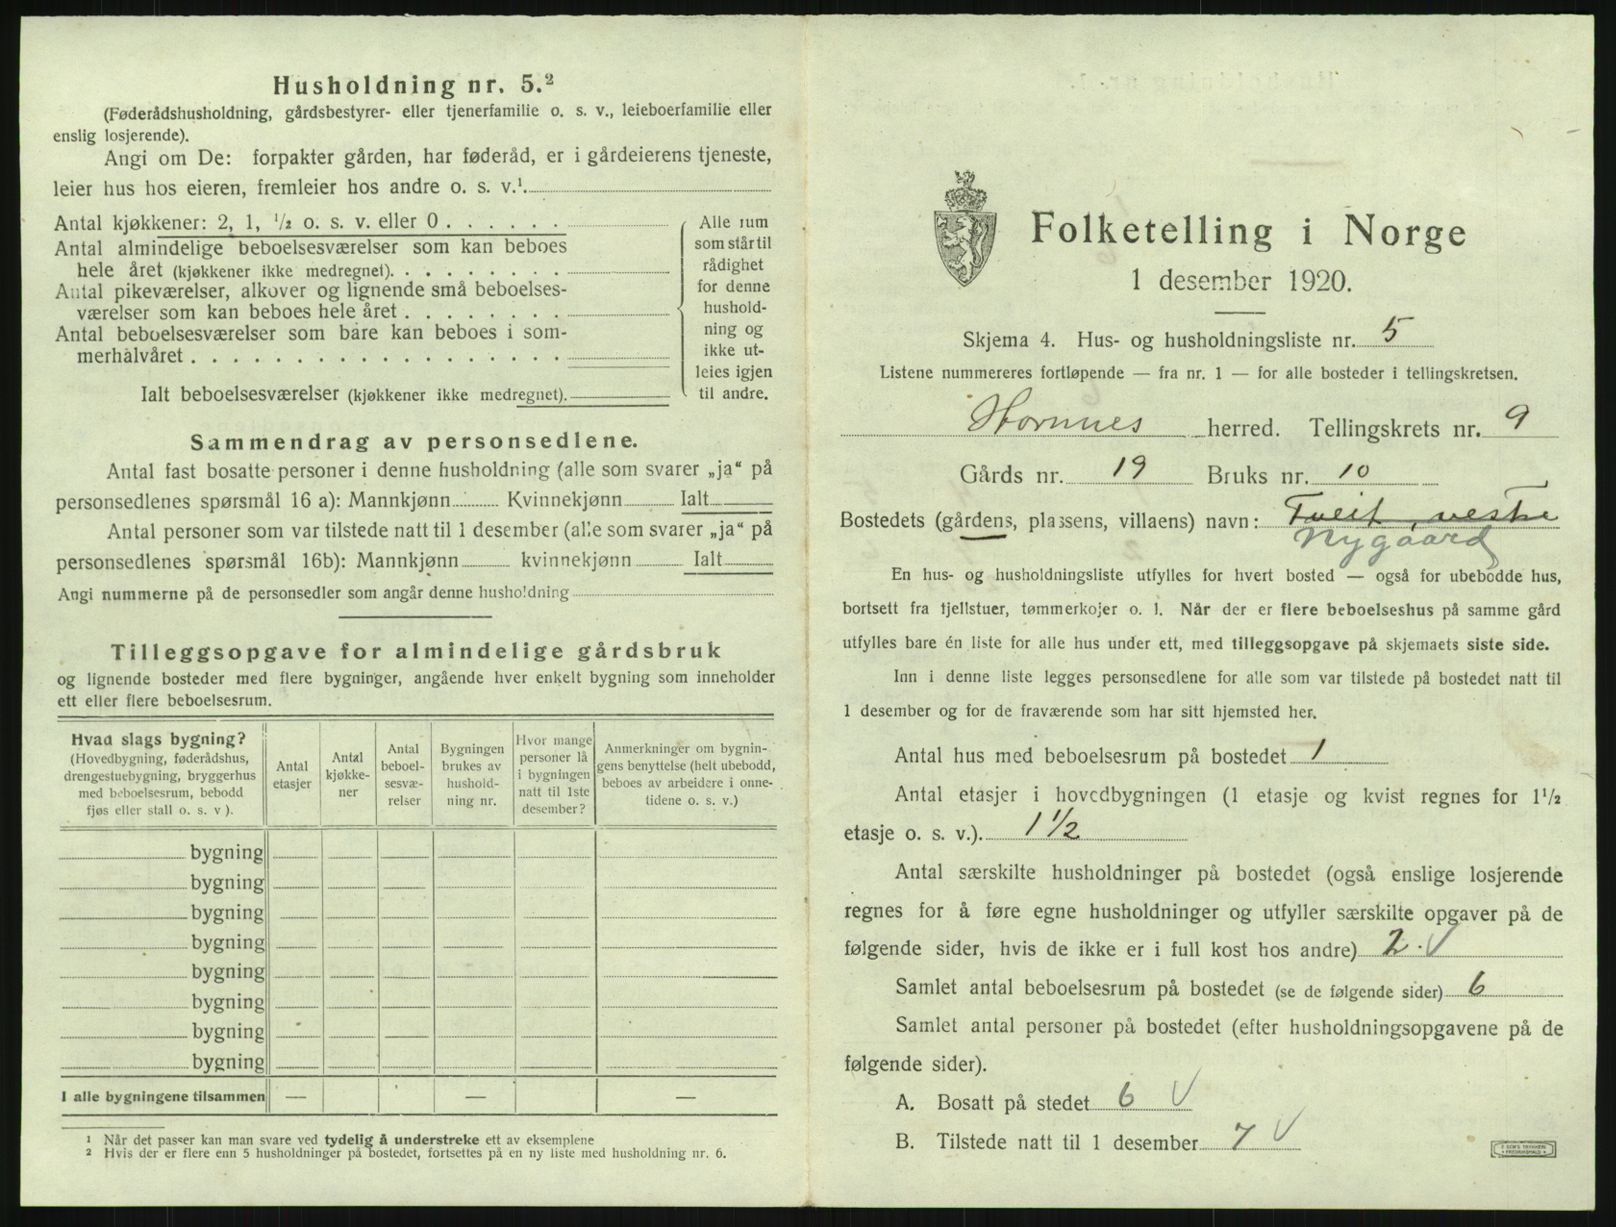 Husholdning nr. 5.²
(Føderådshusholdning, gårdsbestyrer- eller tjenerfamilie o. s. v., leieboerfamilie eller
enslig losjerende).
Angi om De: forpakter gården, har føderåd, er i gårdeierens tjeneste,
leier hus hos eieren, fremleier hos andre o. s. v.¹.
Antal kjøkkener: 2, 1, ½ o. s. v. eller 0 . . . . . .
Antal almindelige beboelsesværelser som kan beboes
hele året (kjøkkener ikke medregnet). . . . . . . . .
Antal pikeværelser, alkover og lignende små beboelses-
værelser som kan beboes hele året . . . . . . . .
Antal beboelsesværelser som bare kan beboes i som-
merhalvåret . . . . . . . . . . . . . . . . . .
Ialt beboelsesværelser (kjøkkener ikke medregnet).
Alle rum
som står til
rådighet
for denne
hushold-
ning og
ikke ut-
leies igjen
til andre.
Sammendrag av personsedlene.
Antal fast bosatte personer i denne husholdning (alle som svarer „ja“ på
personsedlenes spørsmål 16 a): Mannkjønn Kvinnekjønn Ialt
Antal personer som var tilstede natt til 1 desember (alle som svarer „ja“ på
personsedlenes spørsmål 16b): Mannkjønn kvinnekjønn Ialt
Angi nummerne på de personsedler som angår denne husholdning
Tilleggsopgave for almindelige gårdsbruk
og lignende bosteder med flere bygninger, angående hver enkelt bygning som inneholder
ett eller flere beboelsesrum.
Hvad slags bygning?
(Hovedbygning, føderådshus,
drengestuebygning, bryggerhus
med beboelsesrum, bebodd
fjøs eller stall o. s. v ).
Antal
etasjer
Antal
kjøkke-
ner
Antal
beboel-
sesvæ-
relser
Bygningen
brukes av
hushold-
ning nr.
Hvor mange
personer lå
i bygningen
natt til 1ste
desember?
Anmerkninger om bygnin-
gens benyttelse (helt ubebodd,
beboes av arbeidere i onne-
tidene o. s. v.)
bygning
bygning
bygning
bygning
bygning
bygning
bygning
bygning
I alle bygningene tilsammen — — —
¹ Når det passer kan man svare ved tydelig å understreke ett av eksemplene
² Hvis der er flere enn 5 husholdninger på bostedet, fortsettes på en ny liste med husholdning nr. 6.
Folketelling i Norge
1 desember 1920.
Skjema 4. Hus- og husholdningsliste nr. 5
Listene nummereres fortløpende — fra nr. 1 — for alle bosteder i tellingskretsen.
Hornnes herred. Tellingskrets nr. 9
Gårds nr. 19 Bruks nr. 10
Bostedets (gårdens, plassens, villaens) navn: Tveit, vestre
Nygaard
En hus- og husholdningsliste utfylles for hvert bosted — også for ubebodde hus,
bortsett fra fjellstuer, tømmerkojer o. l. Når der er flere beboelseshus på samme gård
utfylles bare én liste for alle hus under ett, med tilleggsopgave på skjemaets siste side.
Inn i denne liste legges personsedlene for alle som var tilstede på bostedet natt til
1 desember og for de fraværende som har sitt hjemsted her.
Antal hus med beboelsesrum på bostedet 1
Antal etasjer i hovedbygningen (1 etasje og kvist regnes for 1½
etasje o. s. v.). 1½
Antal særskilte husholdninger på bostedet (også enslige losjerende
regnes for å føre egne husholdninger og utfyller særskilte opgaver på de
følgende sider, hvis de ikke er i full kost hos andre) 2. V
Samlet antal beboelsesrum på bostedet (se de følgende sider) 6
Samlet antal personer på bostedet (efter husholdningsopgavene på de
følgende sider).
A. Bosatt på stedet 6 V
B. Tilstede natt til 1 desember 7 V